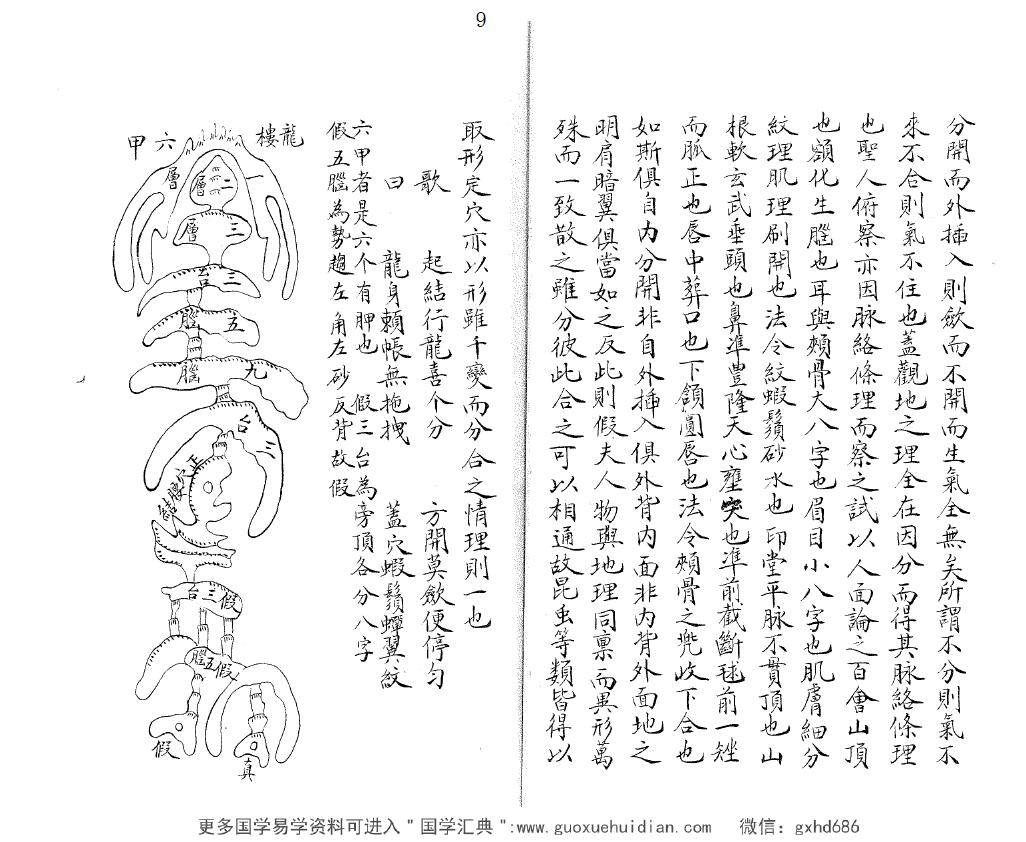 9
分開而外插入則斂而不開而生氣全無矣所謂不分則氣不
來不合則氣不住也蓋觀地之理全在因分而得其脈絡條理
也聖人俯察亦因脈絡條理而察之試以人面論之百會山頂
也額化生腦也耳與頰骨大八字也眉目小八字也肌膚細分
紋理肌理刷開也法令紋蝦鬚砂水也印堂平脈不貫頂也山
根軟玄武垂頭也鼻準豊隆天心壅突也準前截斷毬前一矬
而脈正也唇中葬口也下頷圓唇也法令頰骨之兜收下合也
如斯俱自內分開非自外插入俱外背內面非內背外面地之
明肩暗翼俱當如之反此則假夫人物與地理同稟而異形萬
殊而一致散之雖分彼此合之可以相通故昆虫等類皆得以
取形定穴亦以形雖千變而分合之情理則一也
歌 起結行龍喜个分 方開莫斂便停勻
曰 龍身賴帳無拖拽 蓋穴蝦鬚蟬翼紋
六甲者是六个有胛也 假三台為旁頂各分八字
假五腦為勢趨左角左砂反背故假
龍樓
六甲
一層
二層
三層
三台
五腦
九腦
三台
正穴腰結
假三台
假五腦
假
真
更多国学易学资料可进入＂国学汇典＂:www.guoxuehuidian.com 微信：gxhd686